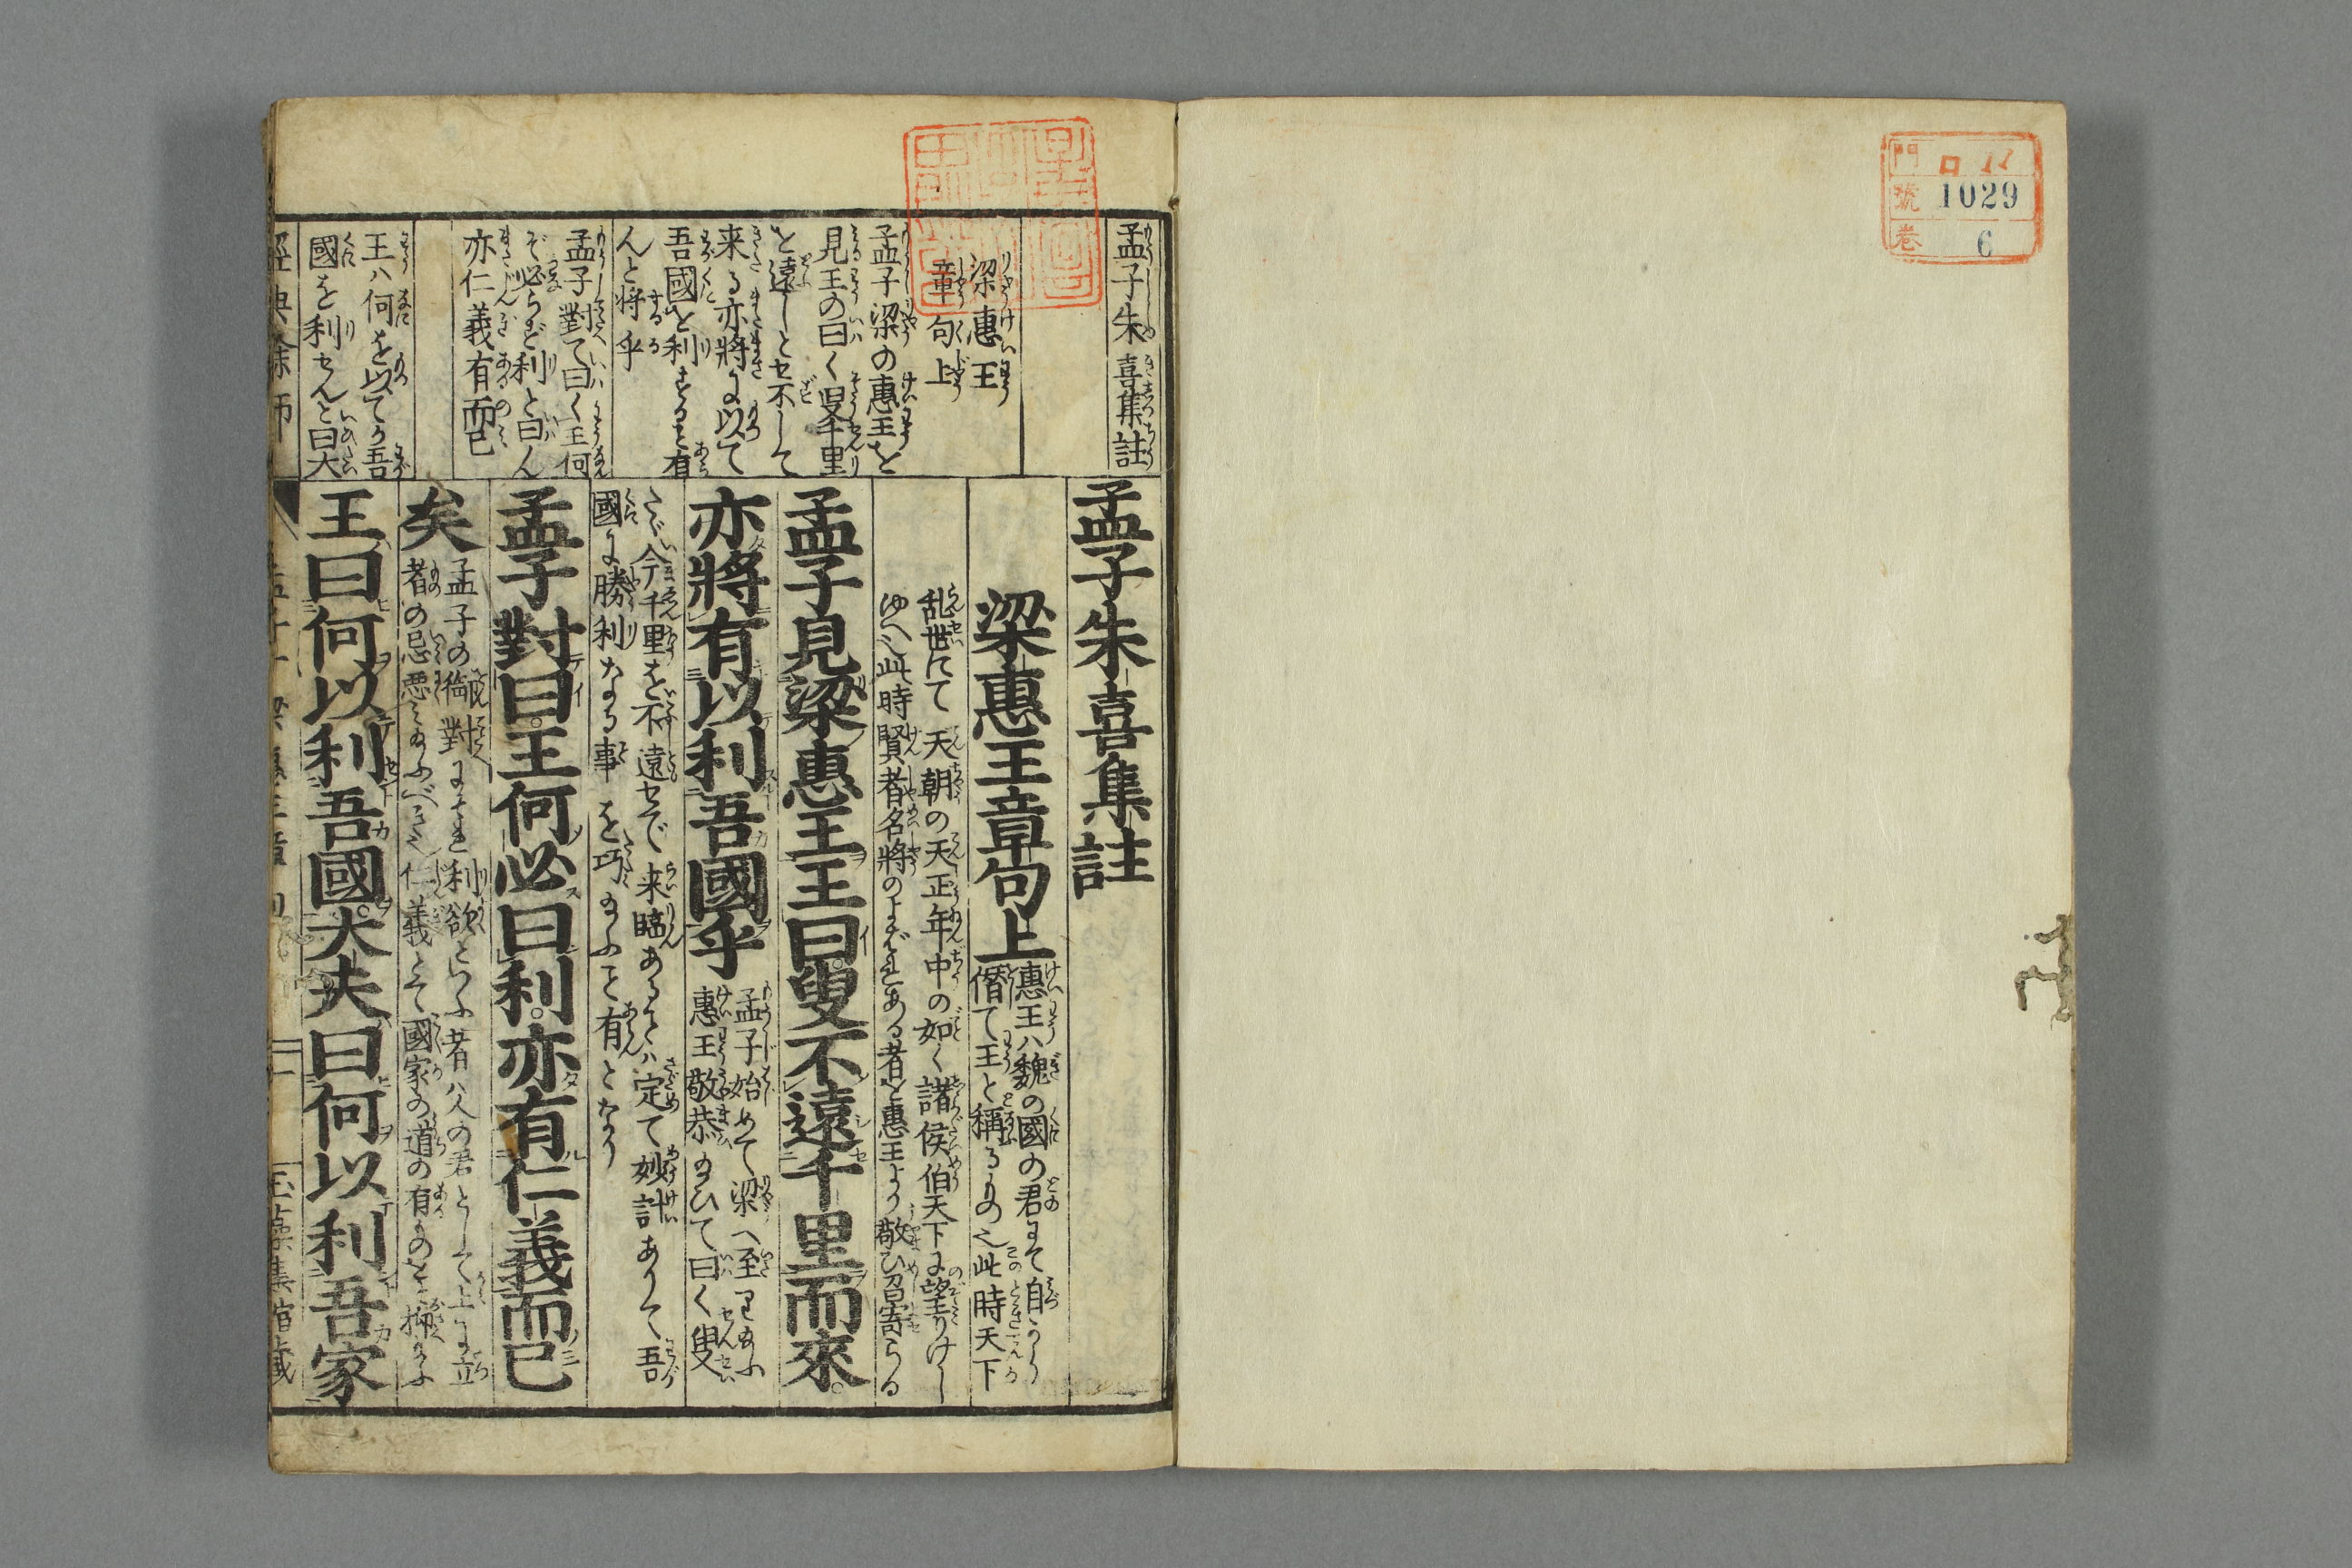 門 ロ 11
號 1029
卷 6
孟子朱熹集註
梁惠王
章句上
孟子梁の惠王を
見王の曰く叟千里
を遠しとセ不して
来る亦將に以て
吾國を利する㕝有
んと将る乎
孟子對て曰く王何
ぞ必らず利と曰ん
亦仁義有而已
王ハ何を以てか吾
國を利せんと曰大
孟子朱熹集註
梁惠王章句上
惠王ハ魏の國の君にて自から
僭て王と稱るもの也此時天下
乱世にて天朝の天正年中の如く諸侯伯天下に望りけし
ゆへ也此時賢者名將のよばれある者を惠王より敬ひ召寄らる
孟子見梁惠王王曰叟不遠千里而來
亦將有以利吾國乎
孟子始めて梁へ至り
惠王敬恭ひて曰く叟
今千里を不遠セで来臨あるハ定て妙計ありて吾
國に勝利なる事を巧有んとなり
孟子對曰王何必曰利亦有仁義而已
矣
孟子の對に利欲といふ者ハ人の君として上に立
者の忌悪べき也仁義とて國家の道の有ものを
王曰何以利吾國大夫曰何以利吾家
經典餘師